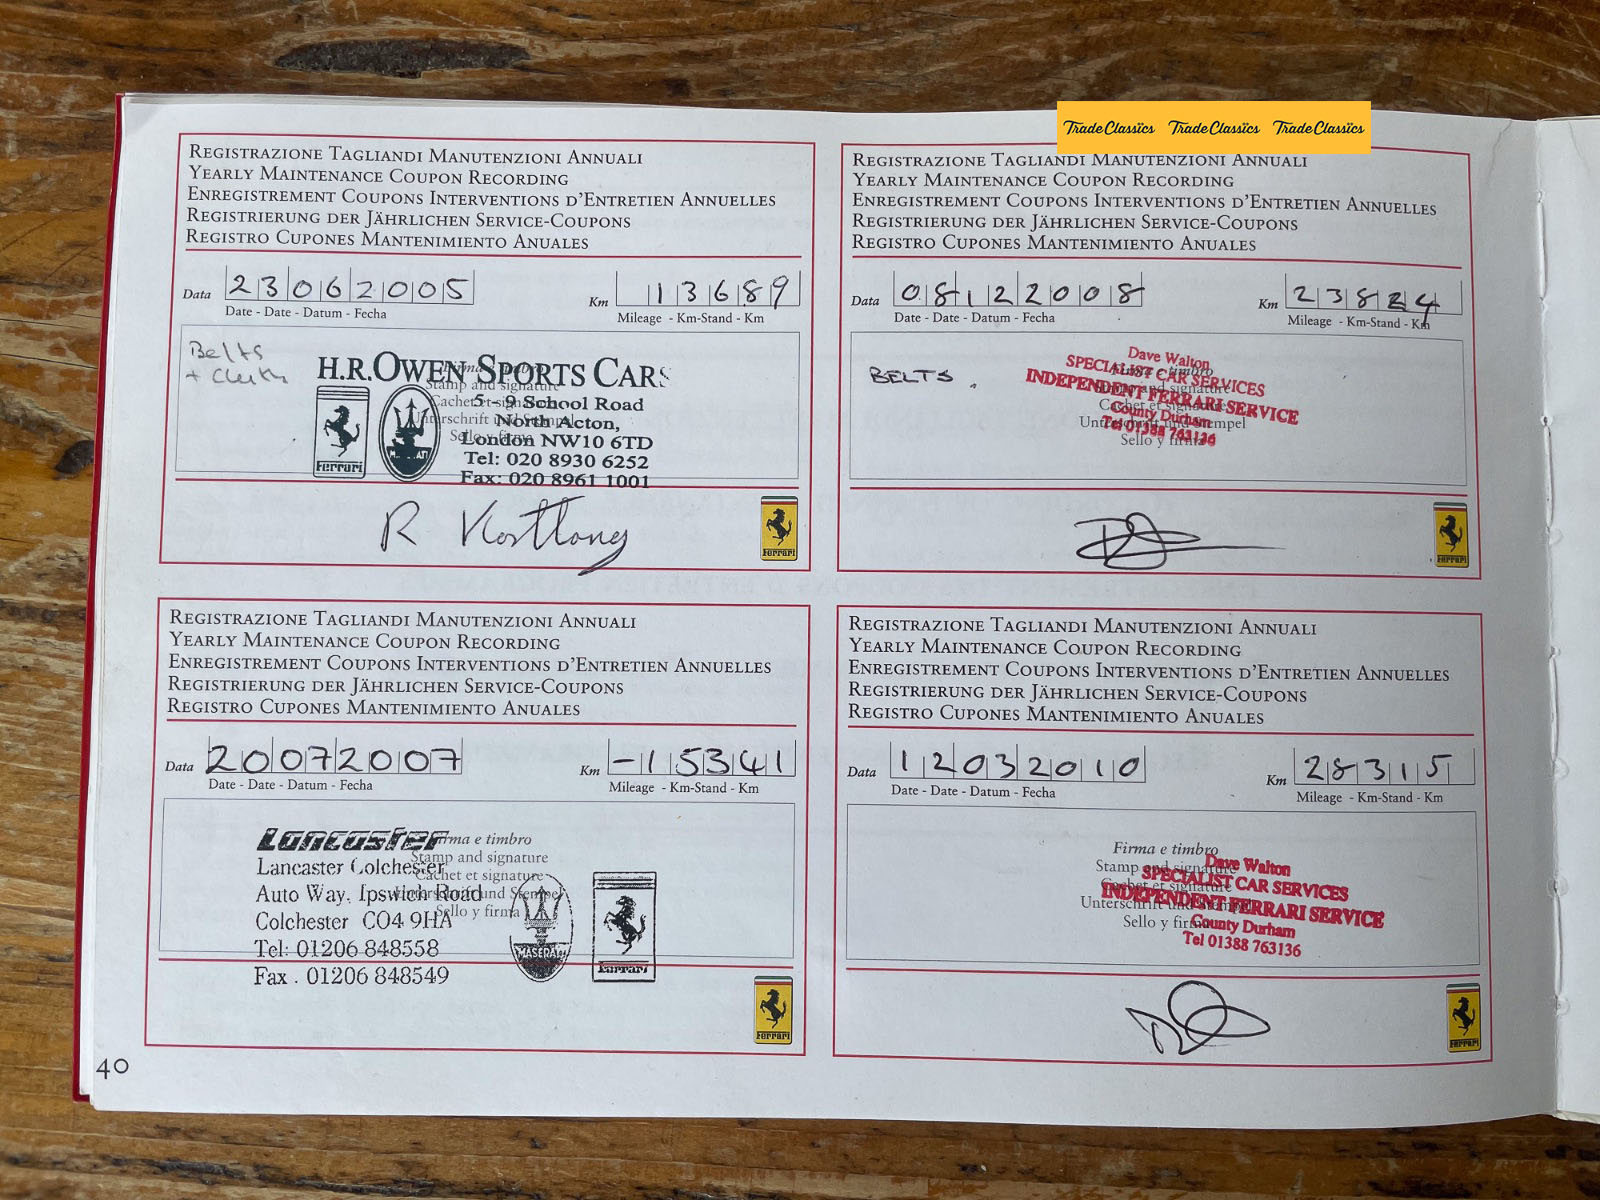 TradeClassics TradeClassics TradeClassics
REGISTRAZIONE TAGLIANDI MANUTENZIONI ANNUALI
YEARLY MAINTENANCE COUPON RECORDING
ENREGISTREMENT COUPONS INTERVENTIONS D'ENTRETIEN ANNUELLES
REGISTRIERUNG DER JÄHRLICHEN SERVICE-COUPONS
REGISTRO CUPONES MANTENIMIENTO ANUALES
Data 23062005 Km 13689
Date - Date - Datum - Fecha Mileage - Km-Stand - Km
Belts
+ Clutch
Firma e timbro
Stamp and signature
Cachet et signature
Unterschrift und Stempel
Sello y firma
H.R. OWEN SPORTS CARS
5 - 9 School Road
North Acton,
London NW10 6TD
Tel: 020 8930 6252
Fax: 020 8961 1001
Ferrari
R
Ferrari
REGISTRAZIONE TAGLIANDI MANUTENZIONI ANNUALI
YEARLY MAINTENANCE COUPON RECORDING
ENREGISTREMENT COUPONS INTERVENTIONS D'ENTRETIEN ANNUELLES
REGISTRIERUNG DER JÄHRLICHEN SERVICE-COUPONS
REGISTRO CUPONES MANTENIMIENTO ANUALES
Data 08122008 Km 23824
Date - Date - Datum - Fecha Mileage - Km-Stand - Km
BELTS.
Firma e timbro
Stamp and signature
Cachet et signature
Unterschrift und Stempel
Sello y firma
Dave Walton
SPECIALIST CAR SERVICES
INDEPENDENT FERRARI SERVICE
County Durham
Tel 01388 763136
Ferrari
REGISTRAZIONE TAGLIANDI MANUTENZIONI ANNUALI
YEARLY MAINTENANCE COUPON RECORDING
ENREGISTREMENT COUPONS INTERVENTIONS D'ENTRETIEN ANNUELLES
REGISTRIERUNG DER JÄHRLICHEN SERVICE-COUPONS
REGISTRO CUPONES MANTENIMIENTO ANUALES
Data 20072007 Km -15341
Date - Date - Datum - Fecha Mileage - Km-Stand - Km
Firma e timbro
Stamp and signature
Cachet et signature
Unterschrift und Stempel
Sello y firma
Lancaster
Lancaster Colchester
Auto Way, Ipswich Road
Colchester CO4 9HA
Tel: 01206 848558
Fax . 01206 848549
MASERATI
Ferrari
Ferrari
REGISTRAZIONE TAGLIANDI MANUTENZIONI ANNUALI
YEARLY MAINTENANCE COUPON RECORDING
ENREGISTREMENT COUPONS INTERVENTIONS D'ENTRETIEN ANNUELLES
REGISTRIERUNG DER JÄHRLICHEN SERVICE-COUPONS
REGISTRO CUPONES MANTENIMIENTO ANUALES
Data 12032010 Km 28315
Date - Date - Datum - Fecha Mileage - Km-Stand - Km
Firma e timbro
Stamp and signature
Cachet et signature
Unterschrift und Stempel
Sello y firma
Dave Walton
SPECIALIST CAR SERVICES
INDEPENDENT FERRARI SERVICE
County Durham
Tel 01388 763136
Ferrari
40